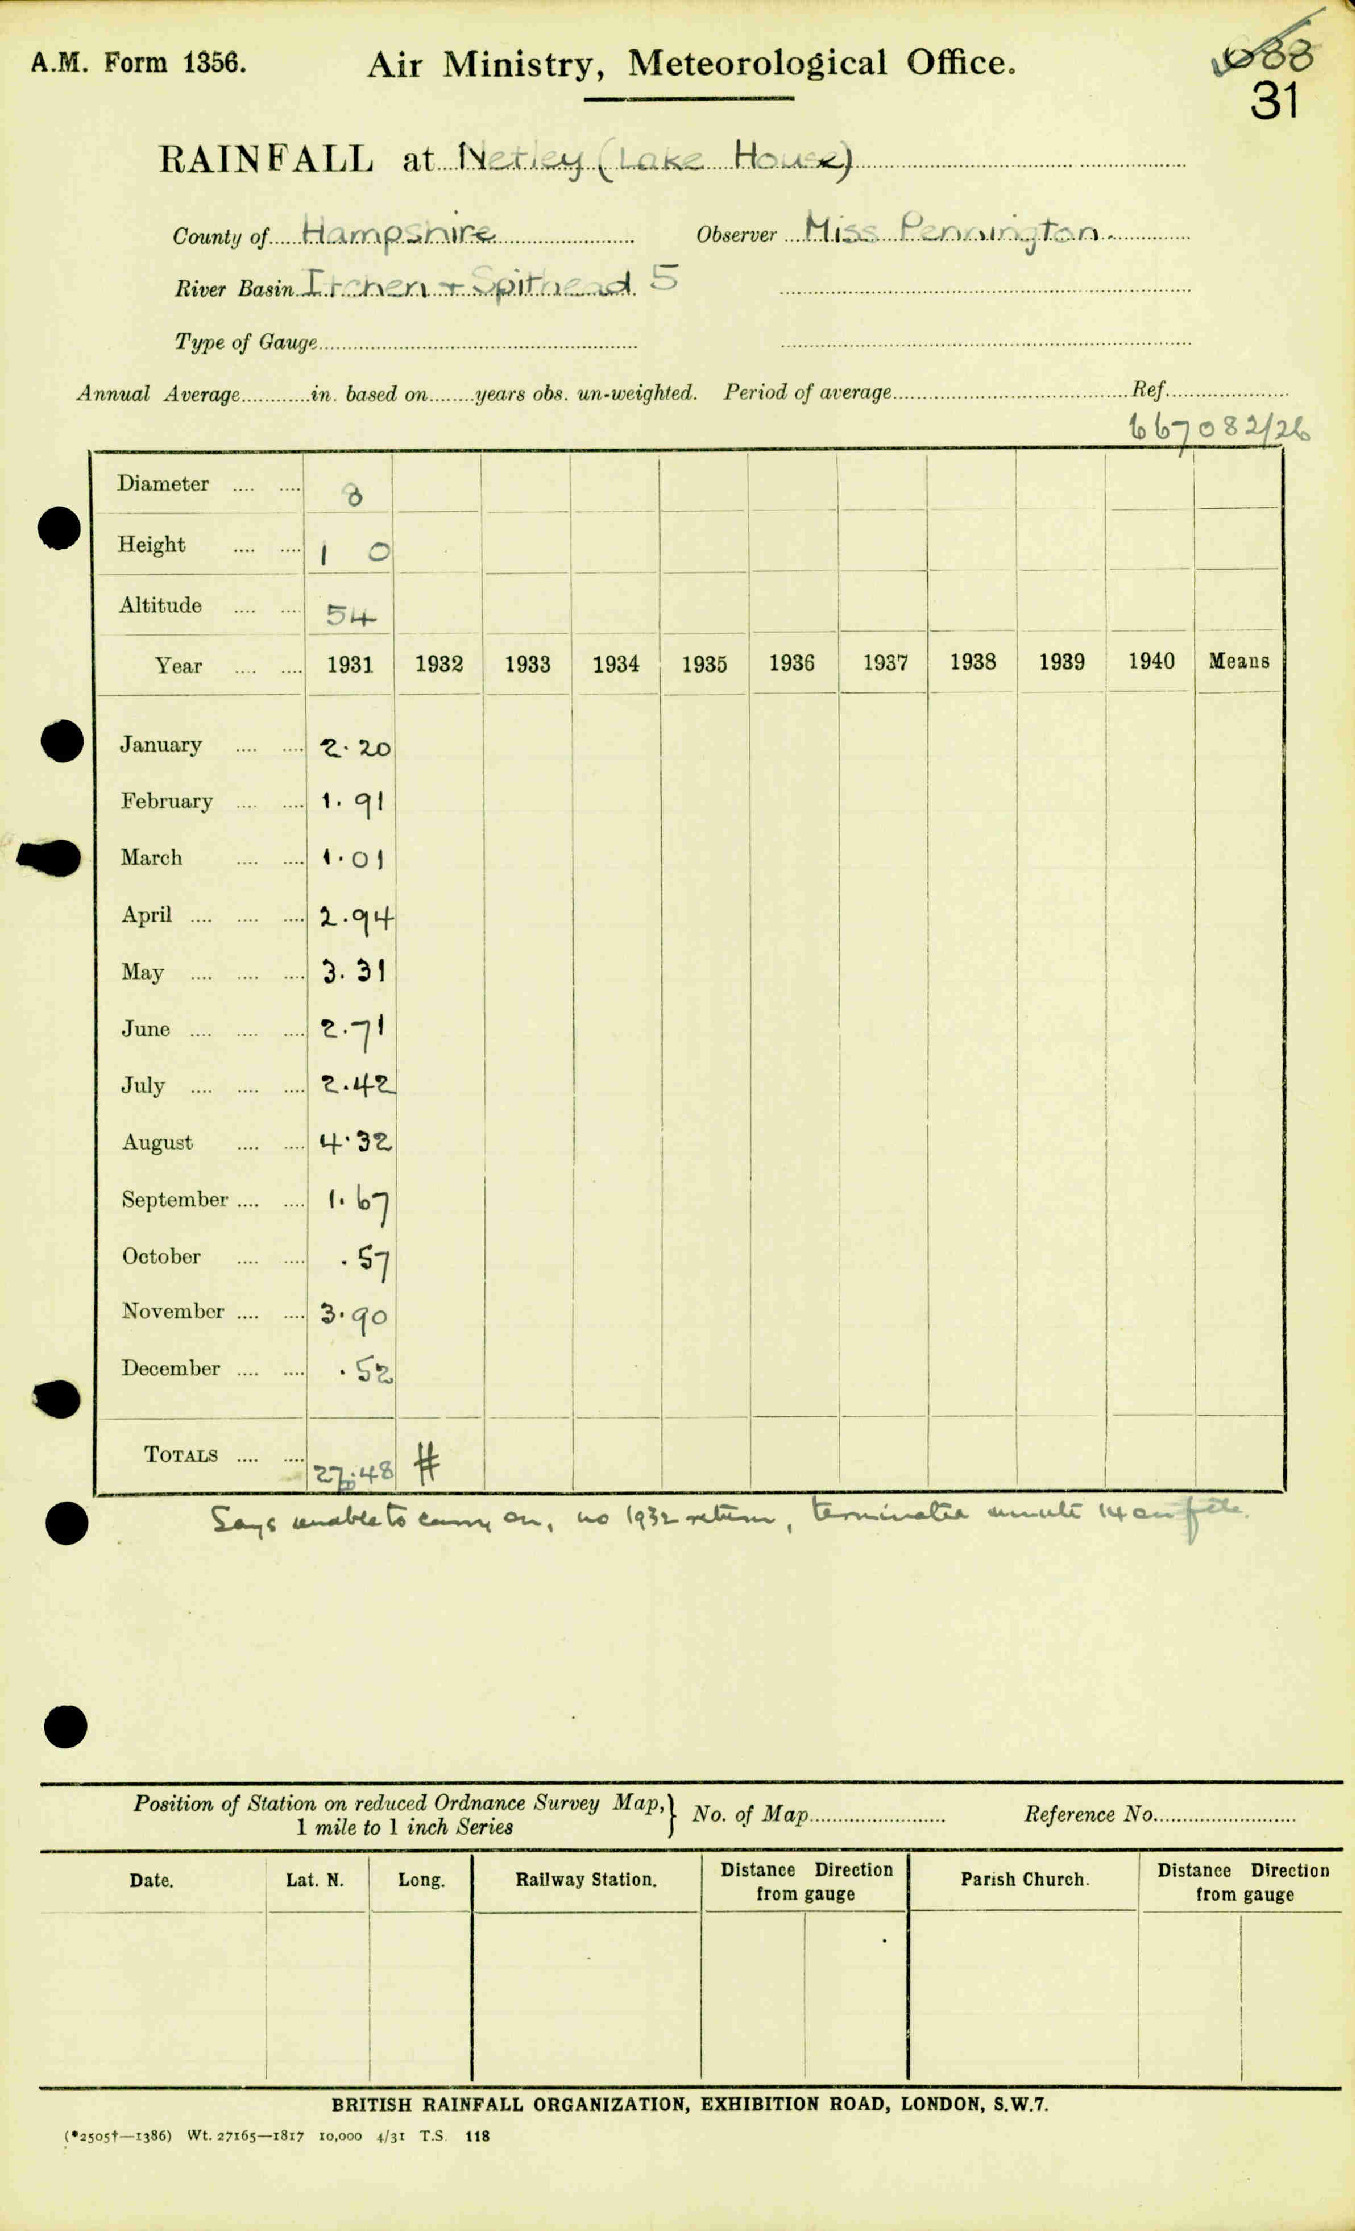 A.M. Form 1356.
Air Ministry, Meteorological Office.
688
31
RAINFALL at Netley (Lake House)
County of Hampshire Observer Miss Pennington.
River Basin Itchen + Spithead 5
Type of Gauge
Annual Average in. based on years obs. un-weighted. Period of average Ref.
667082/26
Diameter 8
Height 1 0
Altitude 54
Year 1931 1932 1933 1934 1935 1936 1937 1938 1939 1940 Means
January 2.20
February 1.91
March 1.01
April 2.94
May 3.31
June 2.71
July 2.42
August 4.32
September 1.67
October .57
November 3.90
December .52
TOTALS 27.48 #
Says unable to carry on, no 1932 return, terminated minute 14 on file.
Position of Station on reduced Ordnance Survey Map, } No. of Map Reference No.
1 mile to 1 inch Series
Date. Lat. N. Long. Railway Station. Distance Direction from gauge Parish Church. Distance Direction from gauge
BRITISH RAINFALL ORGANIZATION, EXHIBITION ROAD, LONDON, S.W.7.
(*2505†—1386) Wt. 27165—1817 10,000 4/31 T.S. 118